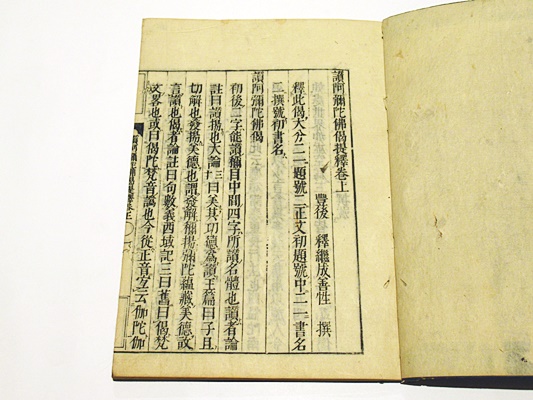 讃阿彌陀佛偈提釋卷上
豐後 釋繼成善性 撰
釋此偈大分二一題號二正文初題號中二一書名
二撰號初書名
讃阿彌陀佛偈
初後二字能讃稱目中間四字所讃名體也讃者論
註曰讃揚也大論曰美其功德為讃玉篇曰子旦
切解也發揚美德也謂發解稱揚彌陀蘊藏美德故
言讃也偈者論註曰句數義西域記三曰舊曰偈梵
文略也或曰偈陀梵音譌也今從正音宜云伽陀伽
讃阿彌陀佛偈提釋卷上